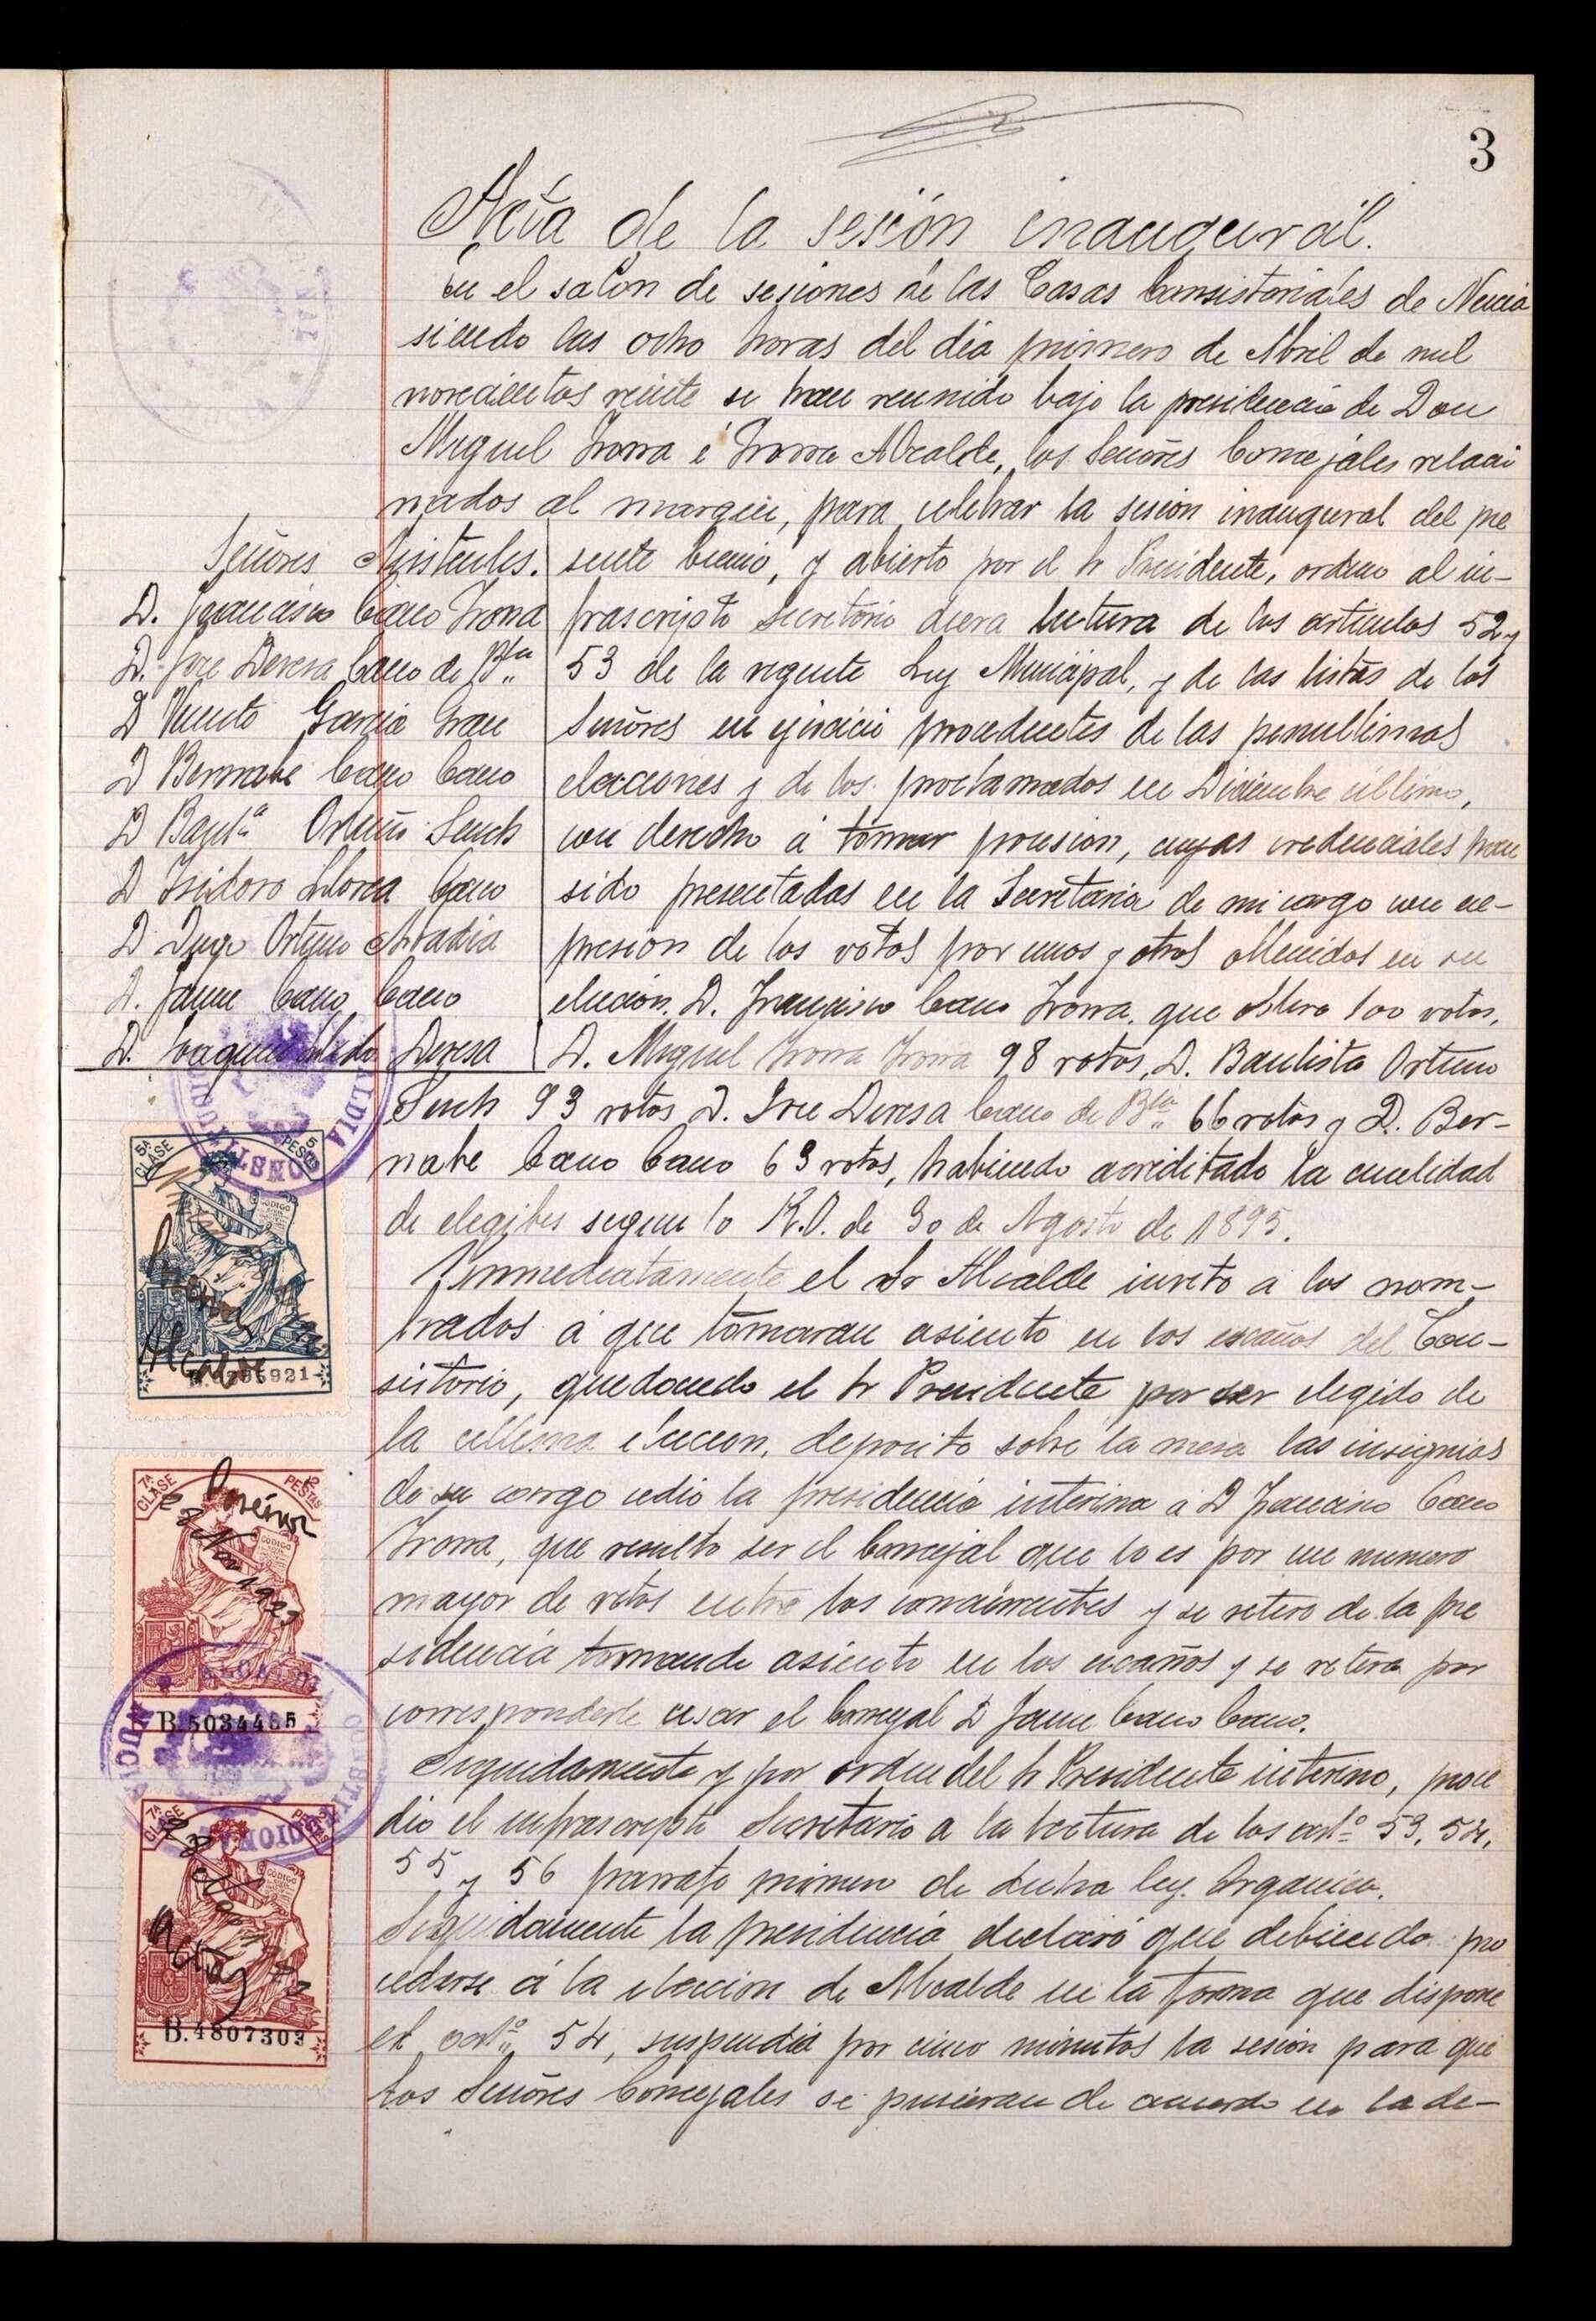 3
Acta de la sesión inaugurál.
En el salón de sesiones de las Casas Consistoriales de Nucia
siendo las ocho horas del dia primero de Abril de mil
novecientos veinte se han reunido bajo la presidencia de Don
Miguel Ivorra é Ivorra Alcalde, los Señores Concejáles relacio
nados al margen, para celebrar la sesión inaugural del pre
Señores Asistentes.
D. Francisco Cano Ivorra
D. Jose Devesa Cano de Bta
D Vicente Garcia Grau
D Bernabe Cano Cano
D Bauta Ortuño Sench
D Isidoro Llorca Cano
D Diego Ortuño Abadia
D. Jaime Cano Cano
D. Joaquin Devesa
sente bienio, y abierto por el Sr Presidente, ordeno al in-
frascripto Secretário diera lectura de los articulos 52 y
53 de la vigente Ley Municipal, y de las listas de los
Señores en ejercicio procedentes de las penultimas
elecciones y de los proclamados en Diciembre último,
con derecho á tomar posesion, cuyas credenciales han
sido presentadas en la Secretaria de mi cargo con ex-
presion de los votos por unos y otros obtenidos en su
eleccion. D. Francisco Cano Ivorra, que obtuvo 100 votos,
D. Miguel Ivorra Ivorra 98 votos, D. Bautista Ortuño
Sench 93 votos D. Jose Devesa Cano de Bta 66 votos y D. Ber-
nabe Cano Cano 63 votos, habiendo acreditado la cualidad
de elegibles segun lo R.O. de 30 de Agosto de 1895.
Inmediatamente el Sr Alcalde invito a los nom-
brados á que tomaran asiento en los escaños del Con-
sistorio, quedando el Sr Presidente por ser elegido de
la última eleccion, deposito sobre la mesa las insignias
de su cargo cedio la presidencia interina á D Francisco Cano
Ivorra, que resulto ser el Concejal que lo es por un numero
mayor de votos entre los concurrentes y se retiro de la pre
sidencia tomando asiento en los escaños y se retira por
corresponderle cesar el Concejal D Jaime Cano Cano.
Seguidamente y por orden del Sr Presidente interino, proce
dio el infrascripto Secretario a la lectura de los arto 53, 54,
55 y 56 parrafo primero de dicha ley Organica.
Seguidamente la presidencia declaró que debiendo pro
cederse á la eleccion de Alcalde en la forma que dispone
el arto 54, suspendió por cinco minutos la sesion para que
los Señores Concejales se pusieran de acuerdo en la de-
5ª CLASE
5 PESETAS
CODIGO
Alcalde
7ª CLASE
2 PESETAS
CODIGO
B.5034485
7ª CLASE
CODIGO
B.4807303